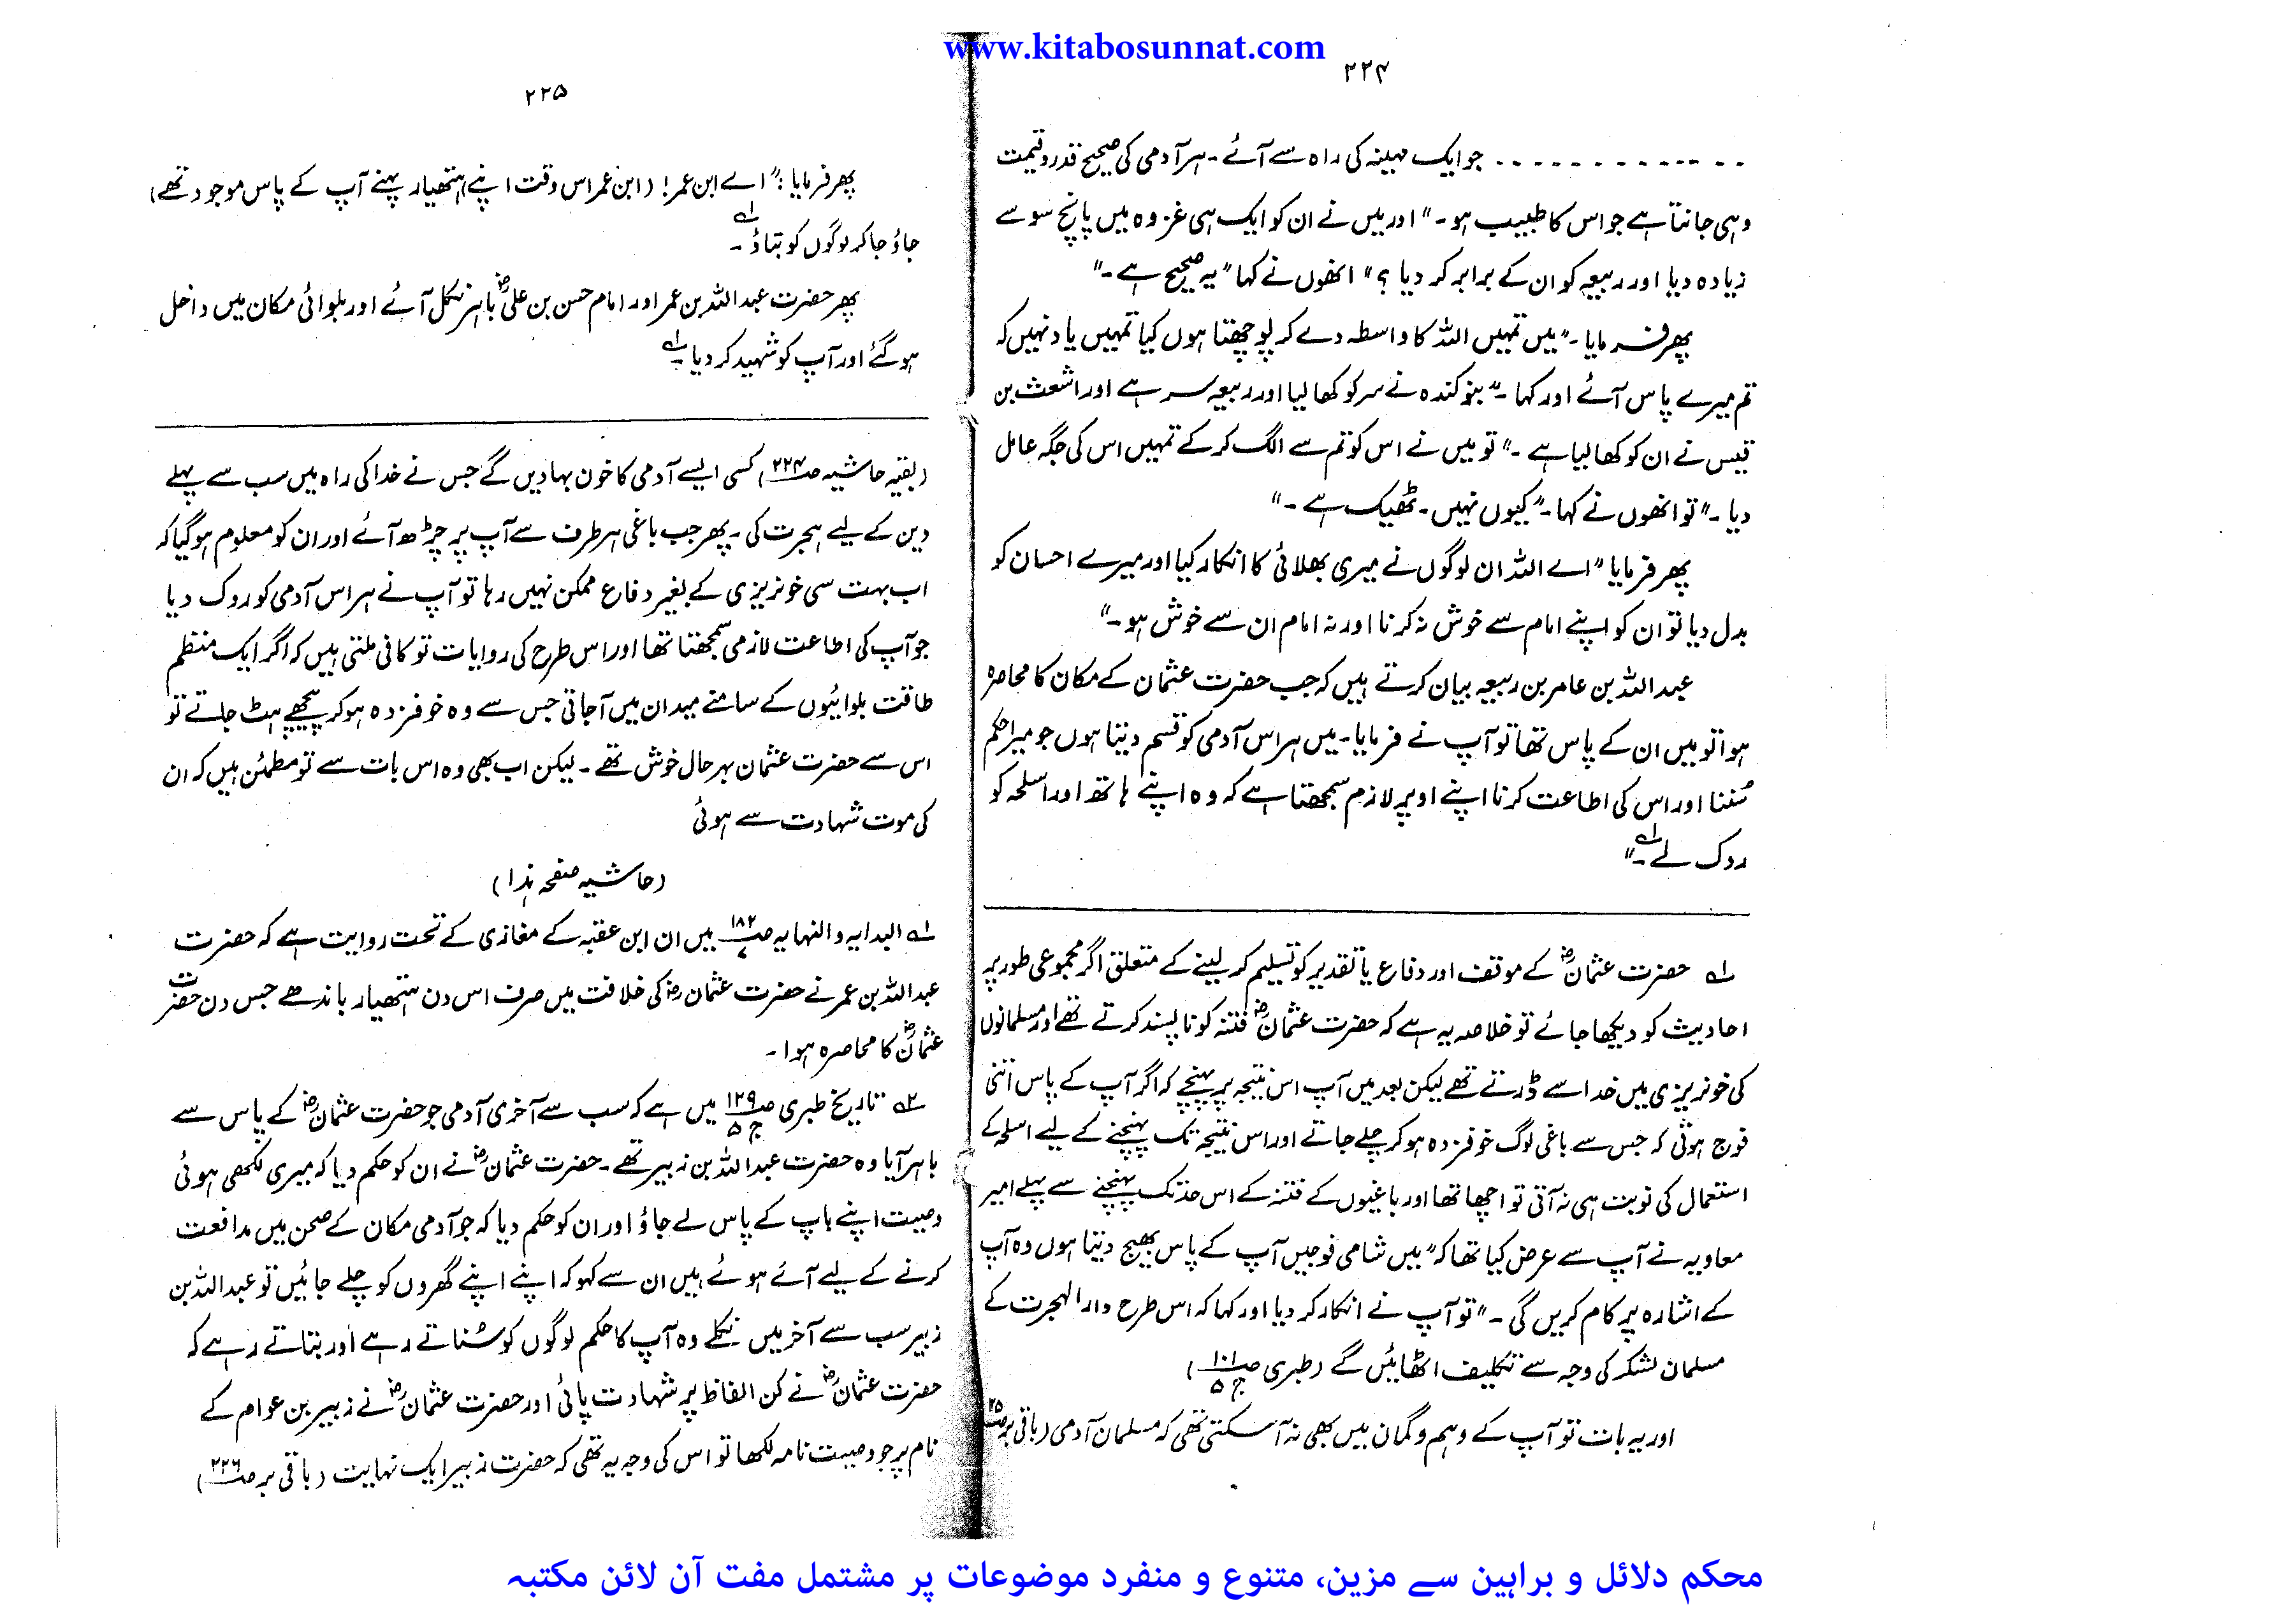 www.kitabosunnat.com
۲۲۴
۔۔۔۔۔۔۔۔۔۔۔۔ جو ایک مہینہ کی راہ سے آئے ۔ ہر آدمی کی صحیح قدر و قیمت
وہی جانتا ہے جو اس کا طبیب ہو ۔" اور میں نے ان کو ایک ہی غزوہ میں پانچ سو سے
زیادہ دیا اور ربیعہ کو ان کے برابر کر دیا ؟" انھوں نے کہا "یہ صحیح ہے ۔"
پھر فرمایا ۔" میں تمہیں اللہ کا واسطہ دے کر پوچھتا ہوں کیا تمہیں یاد نہیں کہ
تم میرے پاس آئے اور کہا ۔" بنو کندہ نے سر کو کھا لیا اور ربیعہ سر ہے اور اشعث بن
قیس نے ان کو کھا لیا ہے ۔" تو میں نے اس کو تم سے الگ کر کے تمہیں اس کی جگہ عامل
دیا ۔" تو انھوں نے کہا ۔" کیوں نہیں ۔ ٹھیک ہے ۔"
پھر فرمایا "اے اللہ ان لوگوں نے میری بھلائی کا انکار کیا اور میرے احسان کو
بدل دیا تو ان کو اپنے امام سے خوش نہ کرنا اور نہ امام ان سے خوش ہو ۔"
عبد اللہ بن عامر بن ربیعہ بیان کرتے ہیں کہ جب حضرت عثمان کے مکان کا محاصرہ
ہوا تو میں ان کے پاس تھا تو آپ نے فرمایا ۔ میں ہر اس آدمی کو قسم دیتا ہوں جو میرا حکم
سُننا اور اس کی اطاعت کرنا اپنے اوپر لازم سمجھتا ہے کہ وہ اپنے ہاتھ اور اسلحہ کو
روک لے ۔" لہ
لہ حضرت عثمانؓ کے موقف اور دفاع یا تقدیر کو تسلیم کر لینے کے متعلق اگر مجموعی طور پر
احادیث کو دیکھا جائے تو خلاصہ یہ ہے کہ حضرت عثمانؓ فتنہ کو نا پسند کرتے تھے اور مسلمانوں
کی خونریزی میں خدا سے ڈرتے تھے لیکن بعد میں آپ اس نتیجہ پر پہنچے کہ اگر آپ کے پاس اتنی
فوج ہوتی کہ جس سے باغی لوگ خوفزدہ ہو کر چلے جاتے اور اس نتیجہ تک پہنچنے کے لیے اسلحہ کے
استعمال کی نوبت ہی نہ آتی تو اچھا تھا اور باغیوں کے فتنہ کے اس حد تک پہنچنے سے پہلے امیر
معاویہ نے آپ سے عرض کیا تھا کہ" میں شامی فوجیں آپ کے پاس بھیج دیتا ہوں وہ آپ
کے اشارہ پر کام کریں گی ۔" تو آپ نے انکار کر دیا اور کہا کہ اس طرح دار الہجرت کے
مسلمان لشکر کی وجہ سے تکلیف اٹھائیں گے (طبری صـ۱۰۱ ج ۵)
اور یہ بات تو آپ کے وہم و گمان میں بھی نہ آ سکتی تھی کہ مسلمان آدمی (باقی بر
۲۲۵
پھر فرمایا :" اے ابن عمر ! (ابن عمر اس وقت اپنے ہتھیار پہنے آپ کے پاس موجود تھے)
جاؤ جا کر لوگوں کو بتاؤ ۔ لہ
پھر حضرت عبد اللہ بن عمر اور امام حسن بن علیؓ باہر نکل آئے اور بلوائی مکان میں داخل
ہو گئے اور آپ کو شہید کر دیا ۔
(بقیہ حاشیہ صـ۲۲۴) کسی ایسے آدمی کا خون بہا دیں گے جس نے خدا کی راہ میں سب سے پہلے
دین کے لیے ہجرت کی ۔ پھر جب باغی ہر طرف سے آپ پر چڑھ آئے اور ان کو معلوم ہو گیا کہ
اب بہت سی خونریزی کے بغیر دفاع ممکن نہیں رہا تو آپ نے ہر اس آدمی کو روک دیا
جو آپ کی اطاعت لازمی سمجھتا تھا اور اس طرح کی روایات تو کافی ملتی ہیں کہ اگر ایک منظم
طاقت بلوائیوں کے سامنے میدان میں آجاتی جس سے وہ خوفزدہ ہو کر پیچھے ہٹ جاتے تو
اس سے حضرت عثمان بہرحال خوش تھے ۔ لیکن اب بھی وہ اس بات سے تو مطمئن ہیں کہ ان
کی موت شہادت سے ہوئی
(حاشیہ صفحہ ہذا)
لہ البدایہ والنہایہ صـ۱۸۲ ۷ میں ان ابن عقبہ کے مغازی کے تحت روایت ہے کہ حضرت
عبد اللہ بن عمر نے حضرت عثمانؓ کی خلافت میں صرف اس دن ہتھیار باندھے جس دن حضرت
عثمانؓ کا محاصرہ ہوا ۔
۲ہ تاریخ طبری صـ۱۲۹ ج ۵ میں ہے کہ سب سے آخری آدمی جو حضرت عثمانؓ کے پاس سے
باہر آیا وہ حضرت عبد اللہ بن زبیر تھے ۔ حضرت عثمانؓ نے ان کو حکم دیا کہ میری لکھی ہوئی
وصیت اپنے باپ کے پاس لے جاؤ اور ان کو حکم دیا کہ جو آدمی مکان کے صحن میں مدافعت
کرنے کے لیے آئے ہوئے ہیں ان سے کہو کہ اپنے اپنے گھروں کو چلے جائیں تو عبد اللہ بن
زبیر سب سے آخر میں نکلے وہ آپ کا حکم لوگوں کو سُناتے رہے اور بتاتے رہے کہ
حضرت عثمانؓ نے کن الفاظ پر شہادت پائی اور حضرت عثمانؓ نے زبیر بن عوام کے
نام پر جو وصیت نامہ لکھا تو اس کی وجہ یہ تھی کہ حضرت زبیر ایک نہایت (باقی بر صـ۲۲۶)
محکم دلائل و براہین سے مزین، متنوع و منفرد موضوعات پر مشتمل مفت آن لائن مکتبہ